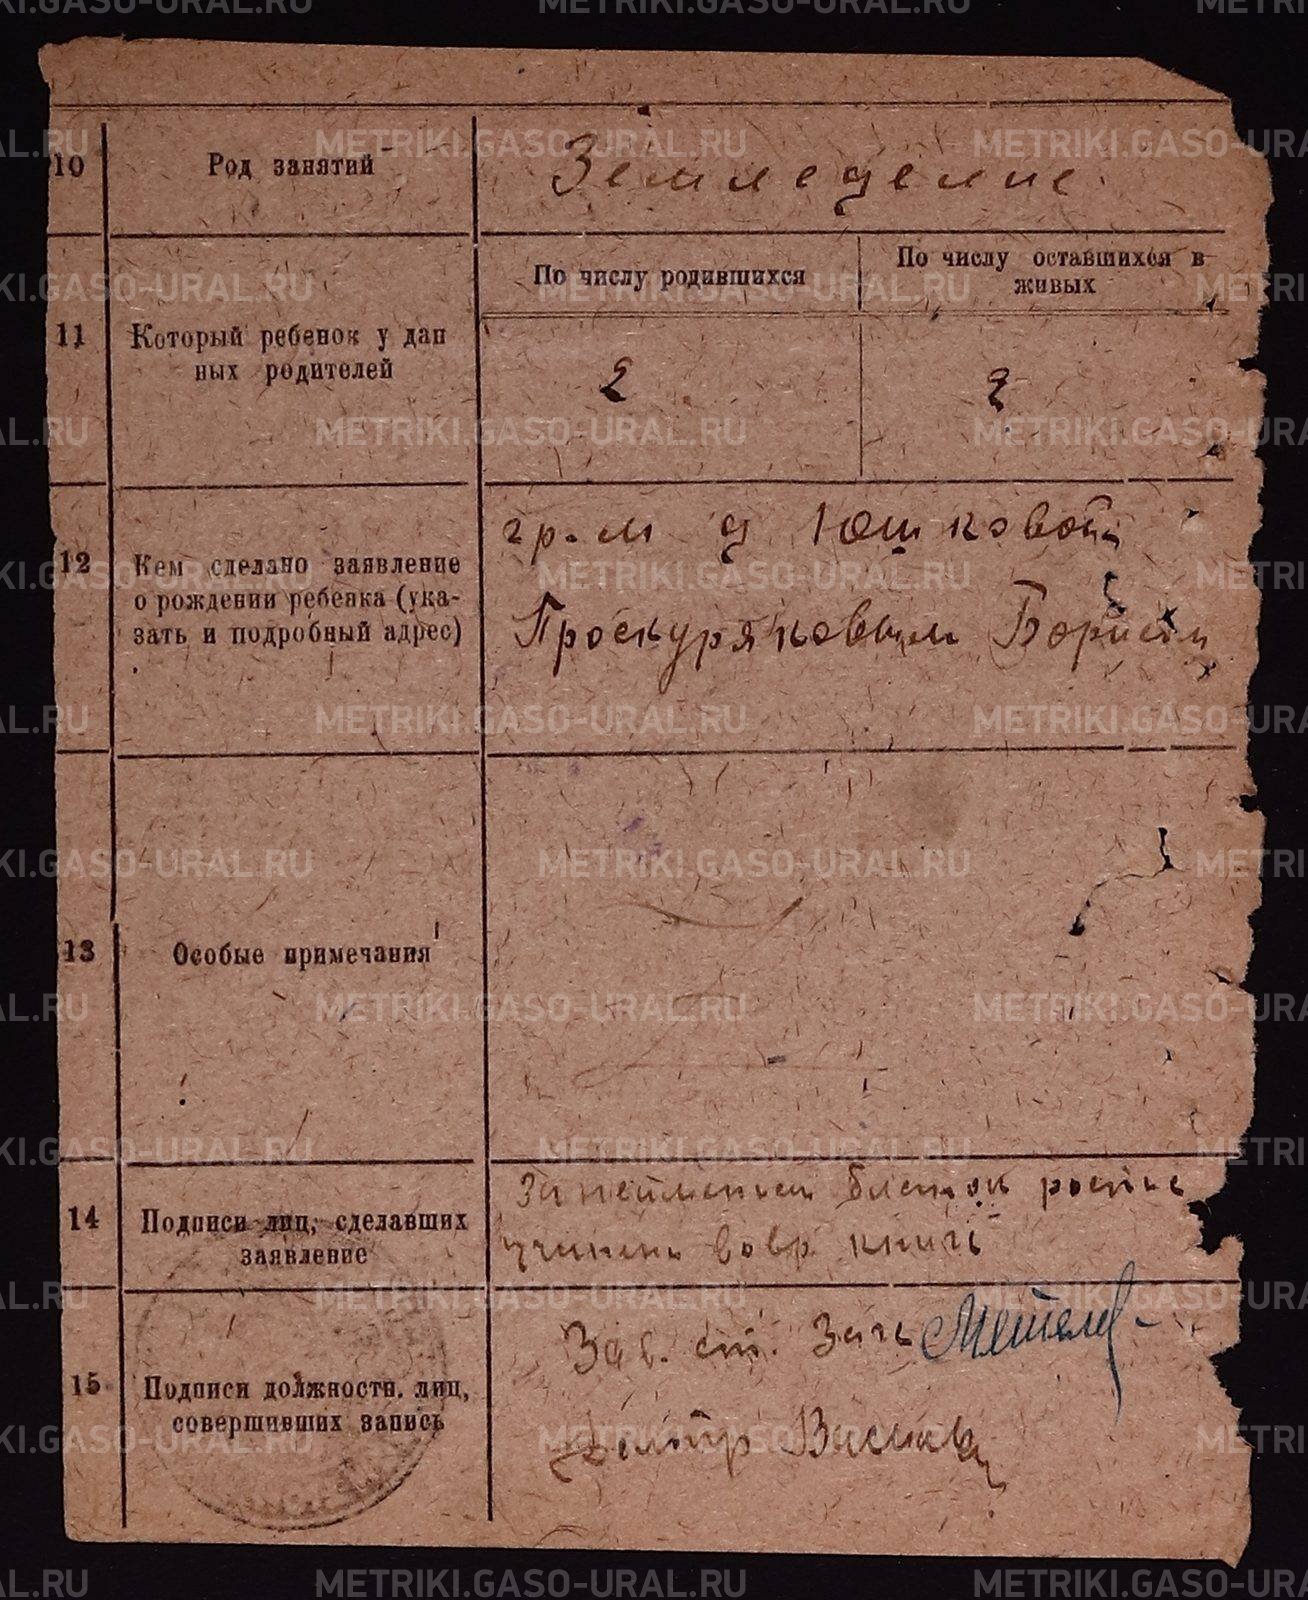 10
Род занятий
Земледелие
11
Который ребенок у дан
ных родителей
По числу родившихся
По числу оставшихся в
живых
2
2
12
Кем сделано заявление
о рождении ребенка (ука-
зать и подробный адрес)
гр-м д Юшковой
Проскуряковым Борисом
13
Особые примечания
14
Подписи лиц, сделавших
заявление
книге
15
Подписи должностн. лиц,
совершивших запись
Зав. ст.
METRIKI.GASO-URAL.RU